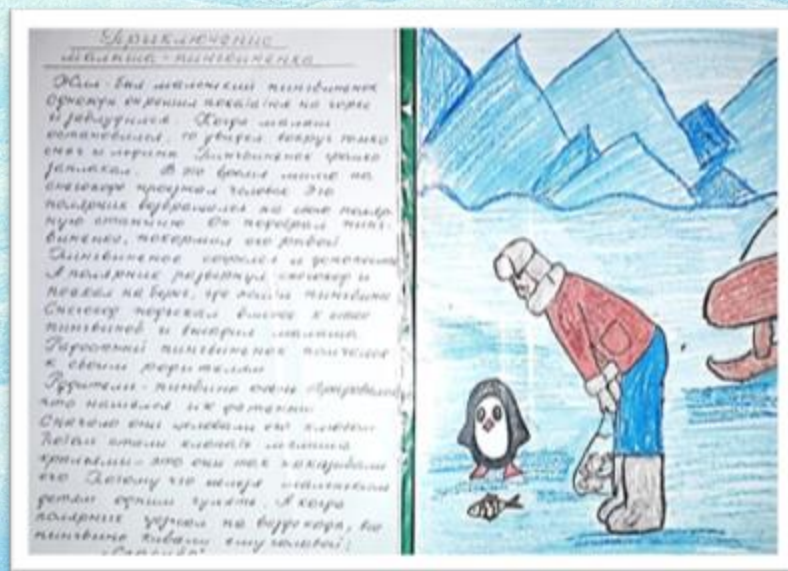 Приключение
малыша-пингвинёнка
Жил-был маленький пингвиненок
Однажды он решил покататься на горке
и заблудился. Когда малыш
остановился, то увидел вокруг только
снег и льдины Пингвиненок громко
заплакал. В это время мимо на
снегоходе проезжал человек Это
полярник возвращался на свою поляр-
ную станцию Он подобрал пинг-
виненка, покормил его рыбой
Пингвиненок согрелся и успокоился
А полярник развернул снегоход и
поехал на берег, где жили пингвины
Снегоход подъехал к стае
пингвинов и высадил малыша
Радостный пингвиненок помчался
к своим родителям
Родители-пингвины очень обрадовались
что нашелся их детеныш
Сначала они целовали его клювом
Потом стали хлопать малыша
крыльями - это они так наказывали
его Потому что нельзя маленьким
детям одним гулять. А когда
полярник уезжал на вездеходе, все
пингвины кивали ему головой:
"Спасибо"